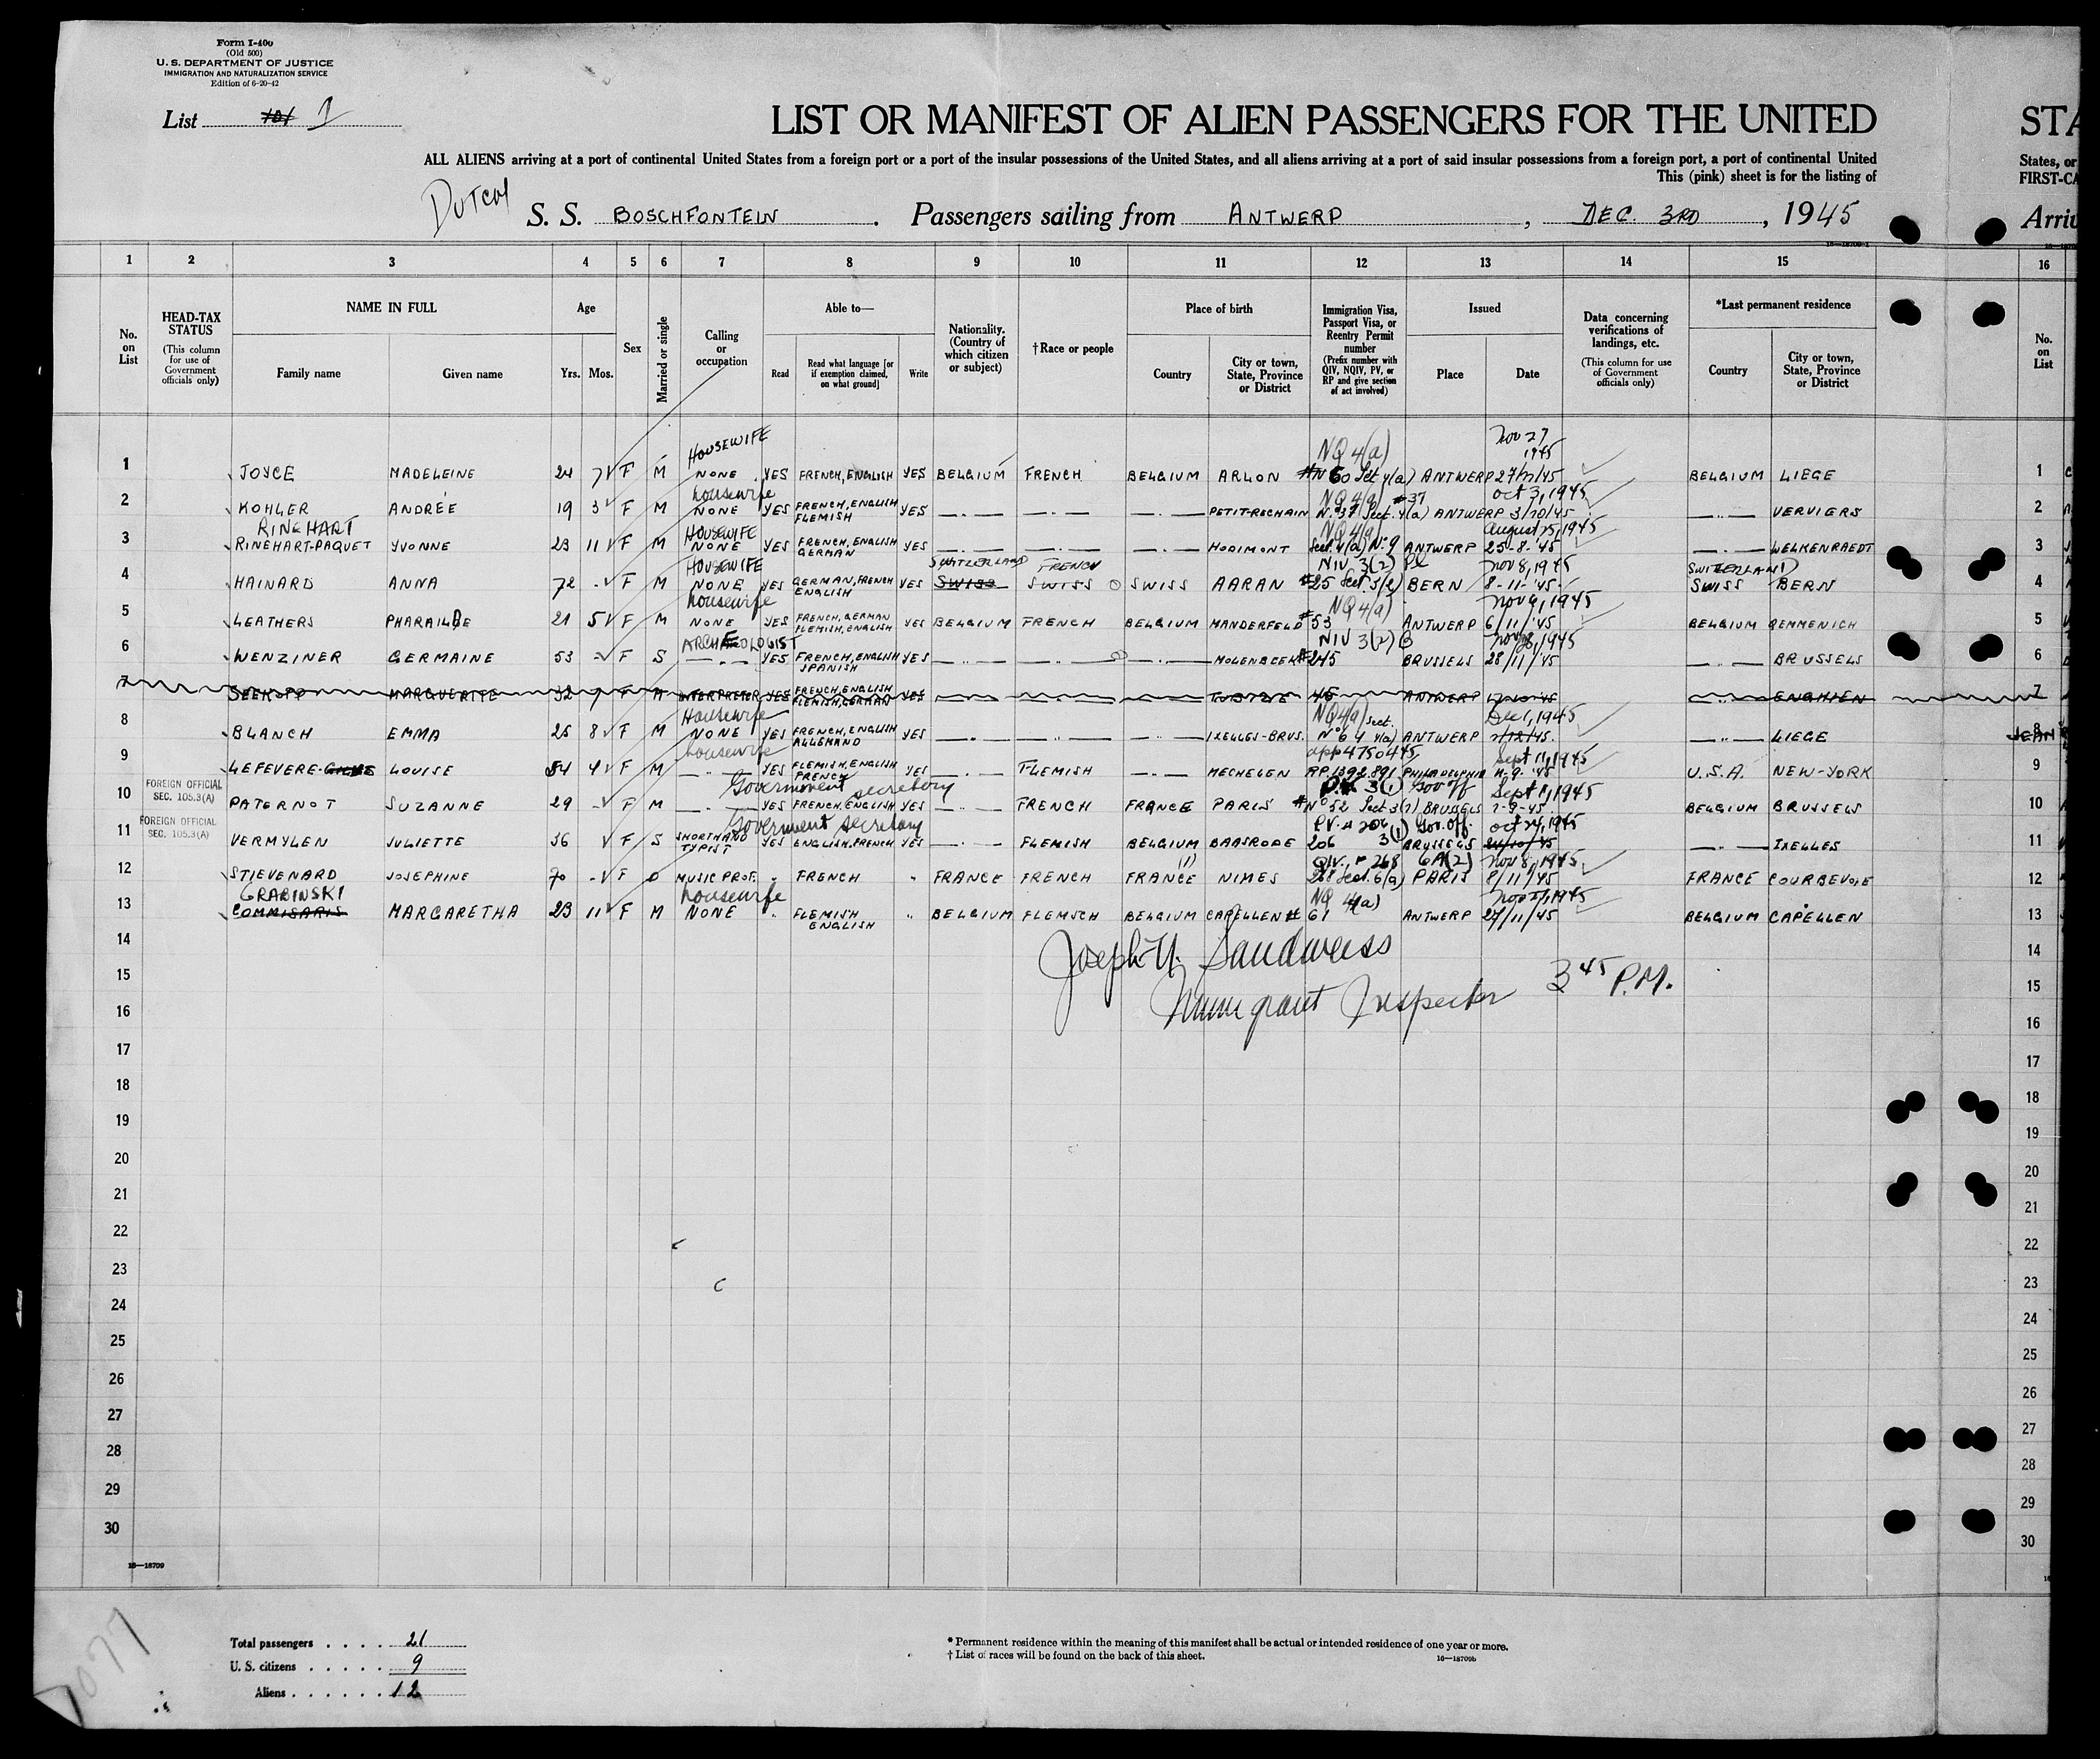 Form I-400
(Old 500)
U. S. DEPARTMENT OF JUSTICE
IMMIGRATION AND NATURALIZATION SERVICE
Edition of 6-20-42
List 1
LIST OR MANIFEST OF ALIEN PASSENGERS FOR THE UNITED
STA
ALL ALIENS arriving at a port of continental United States from a foreign port or a port of the insular possessions of the United States, and all aliens arriving at a port of said insular possessions from a foreign port, a port of continental United
States, or
This (pink) sheet is for the listing of
FIRST-CA
DUTCH
S. S. BOSCHFONTEIN . Passengers sailing from ANTWERP , DEC. 3RD , 1945
Arriv
1 2 3 4 5 6 7 8 9 10 11 12 13 14 15 16
No. on List
HEAD-TAX STATUS
(This column for use of Government officials only)
NAME IN FULL
Family name Given name
Age
Yrs. Mos.
Sex
Married or single
Calling or occupation
Able to—
Read
Read what language [or if exemption claimed, on what ground]
Write
Nationality. (Country of which citizen or subject)
†Race or people
Place of birth
Country
City or town, State, Province or District
Immigration Visa, Passport Visa, or Reentry Permit number
(Prefix number with QIV, NQIV, PV, or RP and give section of act involved)
Issued
Place Date
Data concerning verifications of landings, etc.
(This column for use of Government officials only)
*Last permanent residence
Country
City or town, State, Province or District
No. on List
HOUSEWIFE NQ 4(a) Nov 27 1945
1 JOYCE MADELEINE 24 7 F M NONE YES FRENCH, ENGLISH YES BELGIUM FRENCH BELGIUM ARLON 60 Sect 4(a) ANTWERP BELGIUM LIEGE 1
housewife NQ 4(a) #37 Oct 3, 1945
2 KOHLER ANDRÉE 19 3 F M NONE YES FRENCH, ENGLISH FLEMISH YES —.— —.— —.— PETIT-RECHAIN N. 37 Sect. 4(a) ANTWERP 3/10/45 —..— VERVIERS 2
RINEHART HOUSEWIFE NQ 4(a) August 25, 1945
3 RINEHART-PAQUET YVONNE 23 11 F M NONE YES FRENCH, ENGLISH GERMAN YES —.— —.— —.— HODIMONT Sect. 4(a) N. 9 ANTWERP 25-8-'45 —..— WELKENRAEDT 3
HOUSEWIFE SWITZERLAND FRENCH NIV 3(2) Nov 8, 1945 SWITZERLAND
4 HAINARD ANNA 72 - F M NONE YES GERMAN, FRENCH ENGLISH YES SWISS SWISS SWISS AARAN #25 Sect. 3(2) BERN 8-11-'45 SWISS BERN 4
housewife NQ 4(a) Nov 6, 1945
5 LEATHERS PHARAILDE 21 5 F M NONE YES FRENCH, GERMAN FLEMISH, ENGLISH YES BELGIUM FRENCH BELGIUM MANDERFELD #53 ANTWERP 6/11/'45 BELGIUM GEMMENICH 5
ARCHEOLOGIST NIV 3(2) B Nov 28, 1945
6 WENZINER GERMAINE 53 - F S —.— YES FRENCH, ENGLISH SPANISH YES —..— —.— —.— MOLENBEEK #245 BRUSSELS 28/11/'45 —..— BRUSSELS 6
7 SEEKOPP MARGUERITE 32 7 F M INTERPRETER YES FRENCH, ENGLISH FLEMISH, GERMAN YES 45 ANTWERP ENGHIEN 7
Housewife NQ 4(a) Sect. Dec 1, 1945
8 BLANCH EMMA 25 8 F M NONE YES FRENCH, ENGLISH ALLEMAND YES —.— —..— —.— IXELLES-BRUS. N° 64 4(a) ANTWERP 1/12/45. —..— LIEGE 8
housewife app 4750445 Sept 11, 1945
9 LEFEVERE- LOUISE 54 4 F M —.— YES FLEMISH, ENGLISH FRENCH YES —.— FLEMISH —.— MECHELEN RP 1392891 PHILADELPHIA 11-9-'45 U.S.A. NEW-YORK 9
FOREIGN OFFICIAL SEC. 105.3(A)
Government secretary 3(1) Gov off Sept 1, 1945
10 PATERNOT SUZANNE 29 - F M —.— YES FRENCH, ENGLISH YES —.— FRENCH FRANCE PARIS #N° 52 Sect 3(1) BRUSSELS BELGIUM BRUSSELS 10
FOREIGN OFFICIAL SEC. 105.3(A)
Government secretary PV. # 206 3(1) Gov. off. Oct 24, 1945
11 VERMYLEN JULIETTE 36 F S SHORTHAND TYPIST YES ENGLISH, FRENCH YES —.— FLEMISH BELGIUM BAASRODE 206 BRUSSELS 24/10/45 —..— IXELLES 11
(1) QIV. # 268 6A(2) Nov 8, 1945
12 STIEVENARD JOSEPHINE 70 - F MUSIC PROF. " FRENCH " FRANCE FRENCH FRANCE NIMES 268 Sect. 6(a) PARIS 8/11/45 FRANCE COURBEVOIE 12
GRABINSKI housewife NQ 4(a) Nov 27, 1945
13 COMMISARIS MARGARETHA 23 11 F M NONE " FLEMISH ENGLISH " BELGIUM FLEMSCH BELGIUM CAPELLEN # 61 ANTWERP 27/11/45 BELGIUM CAPELLEN 13
14 14
Joseph Sandweiss
Immigrant Inspector 3 45 P.M.
15 15
16 16
17 17
18 18
19 19
20 20
21 21
22 22
23 23
24 24
25 25
26 26
27 27
28 28
29 29
30 30
16—18709
Total passengers . . . . 21
U. S. citizens . . . . . 9
Aliens . . . . . . 12
* Permanent residence within the meaning of this manifest shall be actual or intended residence of one year or more.
† List of races will be found on the back of this sheet.
16—18709b